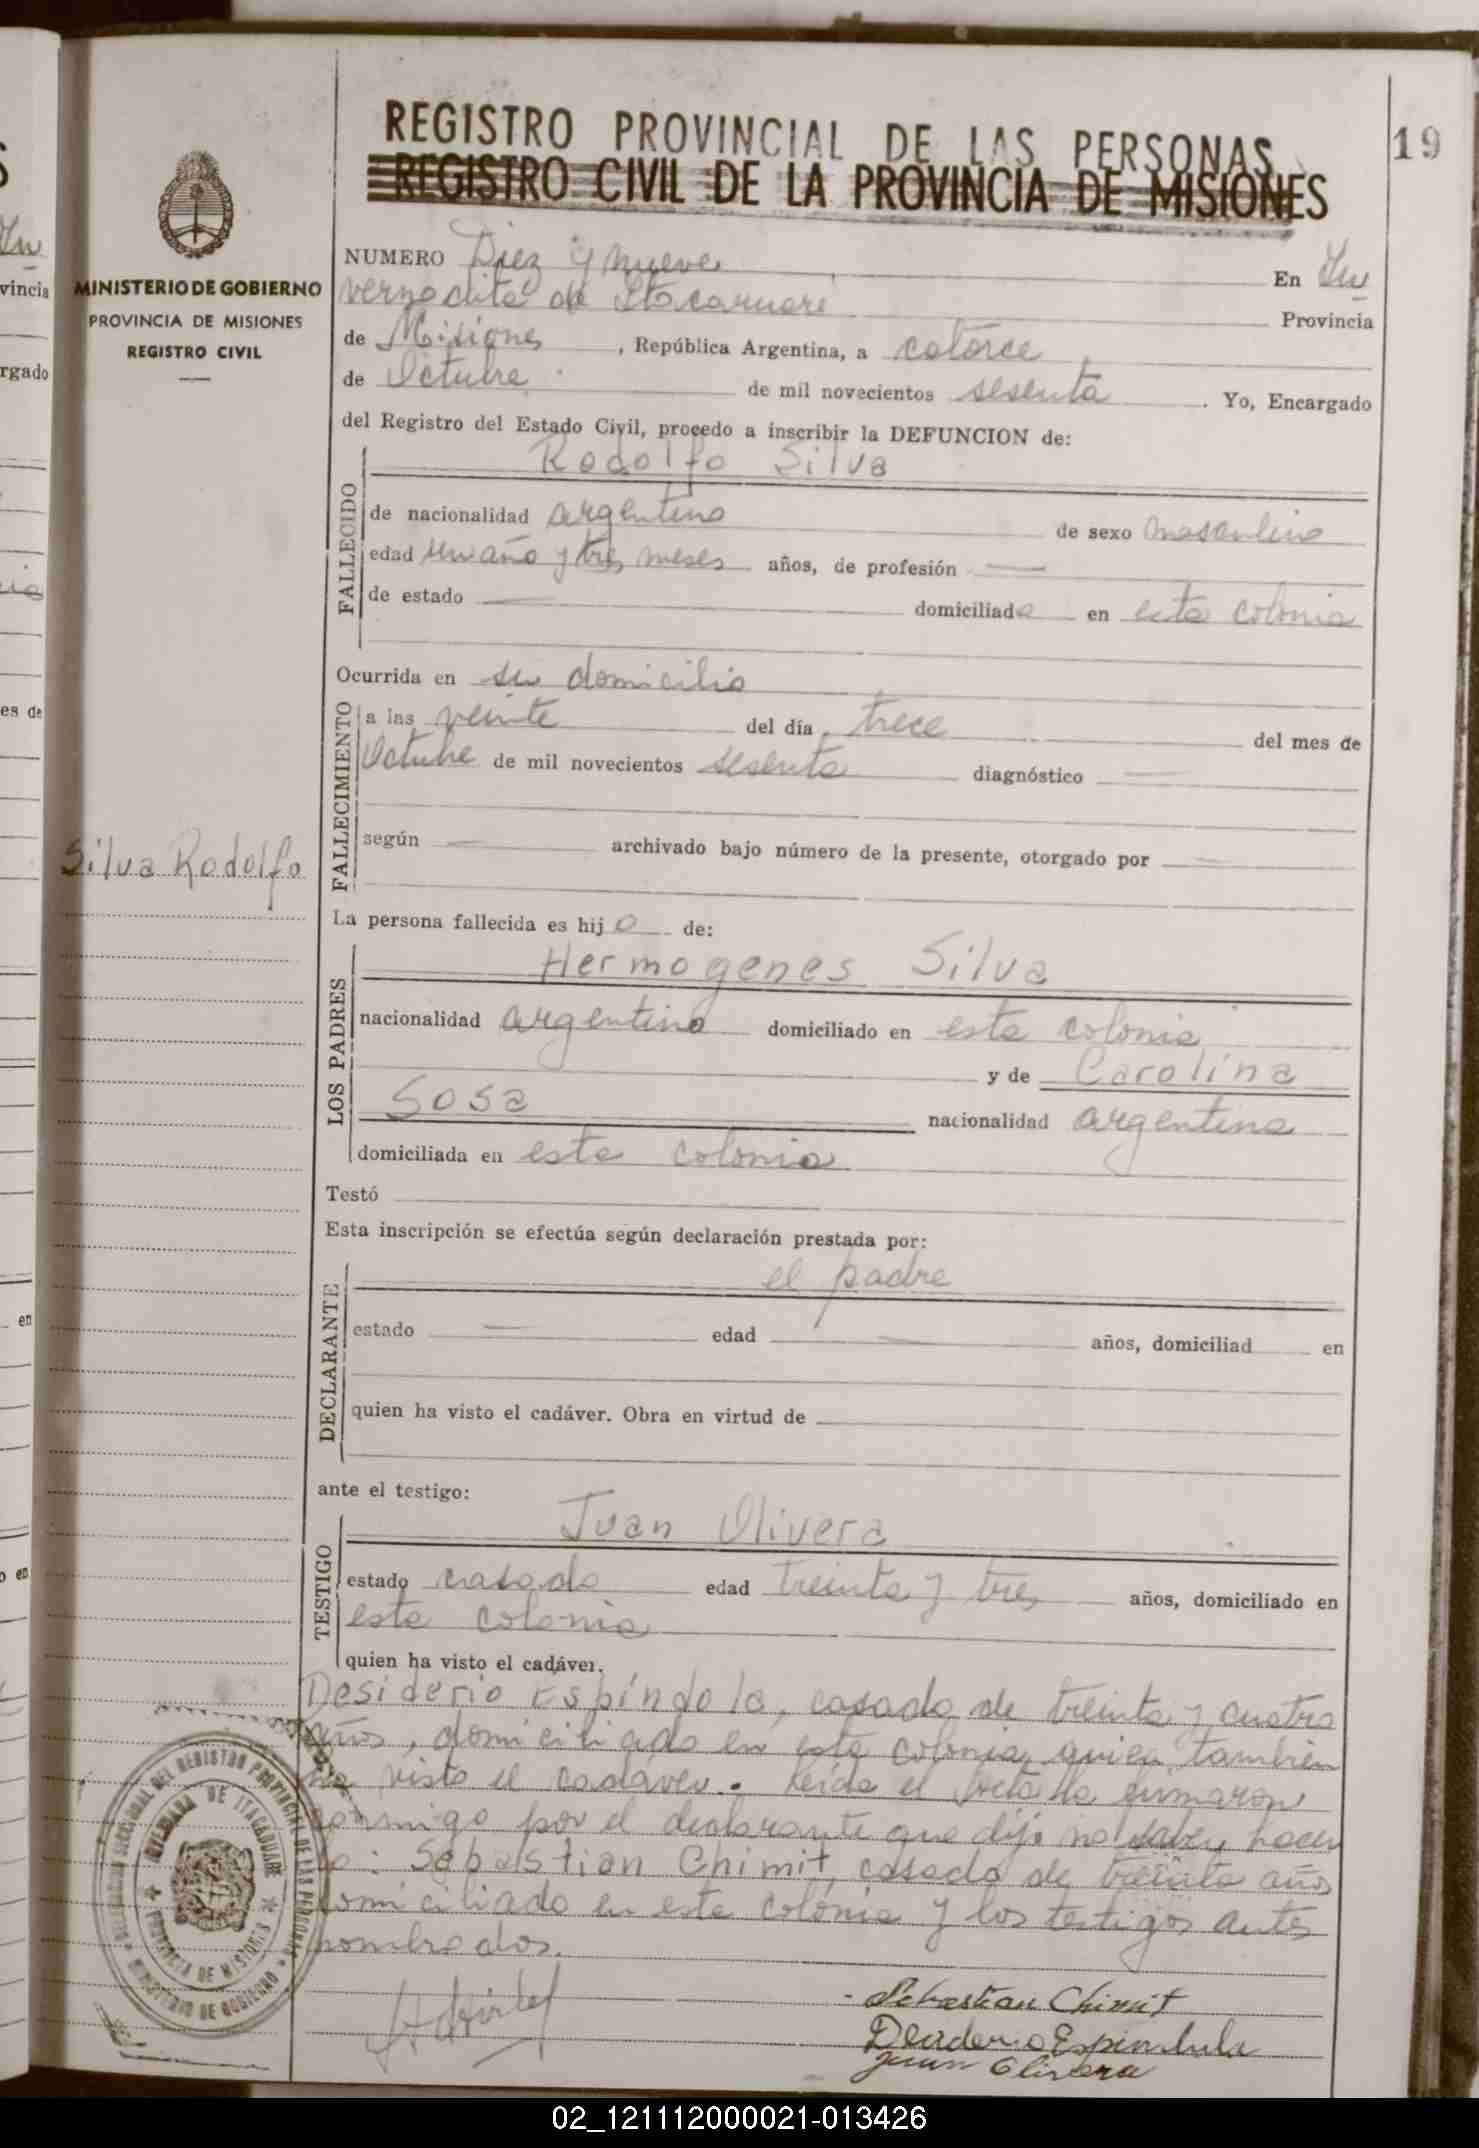 REGISTRO PROVINCIAL DE LAS PERSONAS
19
REGISTRO CIVIL DE LA PROVINCIA DE MISIONES
MINISTERIO DE GOBIERNO
PROVINCIA DE MISIONES
REGISTRO CIVIL
NUMERO Diez y nueve En In
vernadita de Itacaruaré Provincia
de Misiones, República Argentina, a catorce
de Octubre de mil novecientos sesenta. Yo, Encargado
del Registro del Estado Civil, procedo a inscribir la DEFUNCION de:
Rodolfo Silva
FALLECIDO
de nacionalidad argentino de sexo masculino
edad un año y tres meses años, de profesión —
de estado — domiciliado en esta colonia
Ocurrida en su domicilio
FALLECIMIENTO
a las veinte del día trece del mes de
Octubre de mil novecientos sesenta diagnóstico —
según — archivado bajo número de la presente, otorgado por —
Silva Rodolfo
La persona fallecida es hijo de:
LOS PADRES
Hermogenes Silva
nacionalidad argentino domiciliado en esta colonia
y de Carolina
Sosa nacionalidad argentina
domiciliada en esta colonia
Testó
Esta inscripción se efectúa según declaración prestada por:
DECLARANTE
el padre
estado — edad — años, domiciliad en
quien ha visto el cadáver. Obra en virtud de
ante el testigo:
TESTIGO
Juan Olivera
estado casado edad treinta y tres años, domiciliado en
esta colonia
quien ha visto el cadáver.
Desiderio Espíndola, casado de treinta y cuatro
años, domiciliado en esta colonia, quien también
ha visto el cadáver. Leída el acta la firmaron
conmigo por el declarante que dijo no saber hacer
lo: Sebastian Chimit, casado de treinta años
domiciliado en esta colonia y los testigos antes
nombrados.
DELEGACION SECCIONAL DEL REGISTRO PROVINCIAL DE LAS PERSONAS
MINISTERIO DE GOBIERNO
DE ITACARUARE
PROVINCIA DE MISIONES
Sebastian Chimit
Juan Olivera
02_121112000021-013426